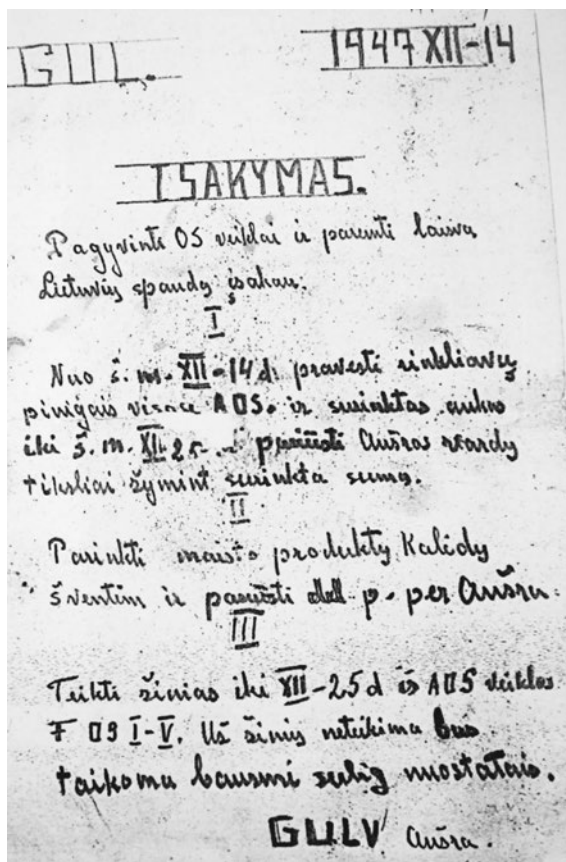 GUL. 1947 XII-14
ISAKYMAS.
Pagyvinti OS veiklai ir paremti laisvą
Lietuvių spaudą įsakau:
I
Nuo š. m. XII-14 d. pravesti rinkliavų
pinigais visose AOS. ir surinktas aukas
iki š. m. XII 25. Aušros vardų
tiksliai žymint surinkta sumą.
II
Parinkti maisto produktų Kalėdų
šventėm ir p. per Aušra.
III
Teikti žinias iki XII-25 d iš AOS veiklos
F 09 I-V. Už žinių neteikima bus
taikoma bausmė sulig nuostatais.
GULV Aušra.